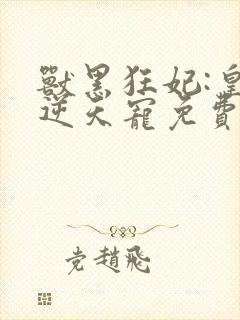 獸黑狂妃:皇
逆天寵免費
党趙飛